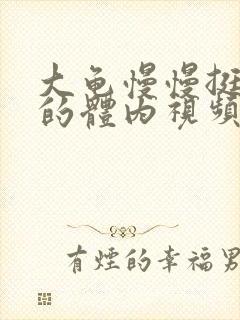 大龟慢慢挺
的體內視頻
有煙的幸福男